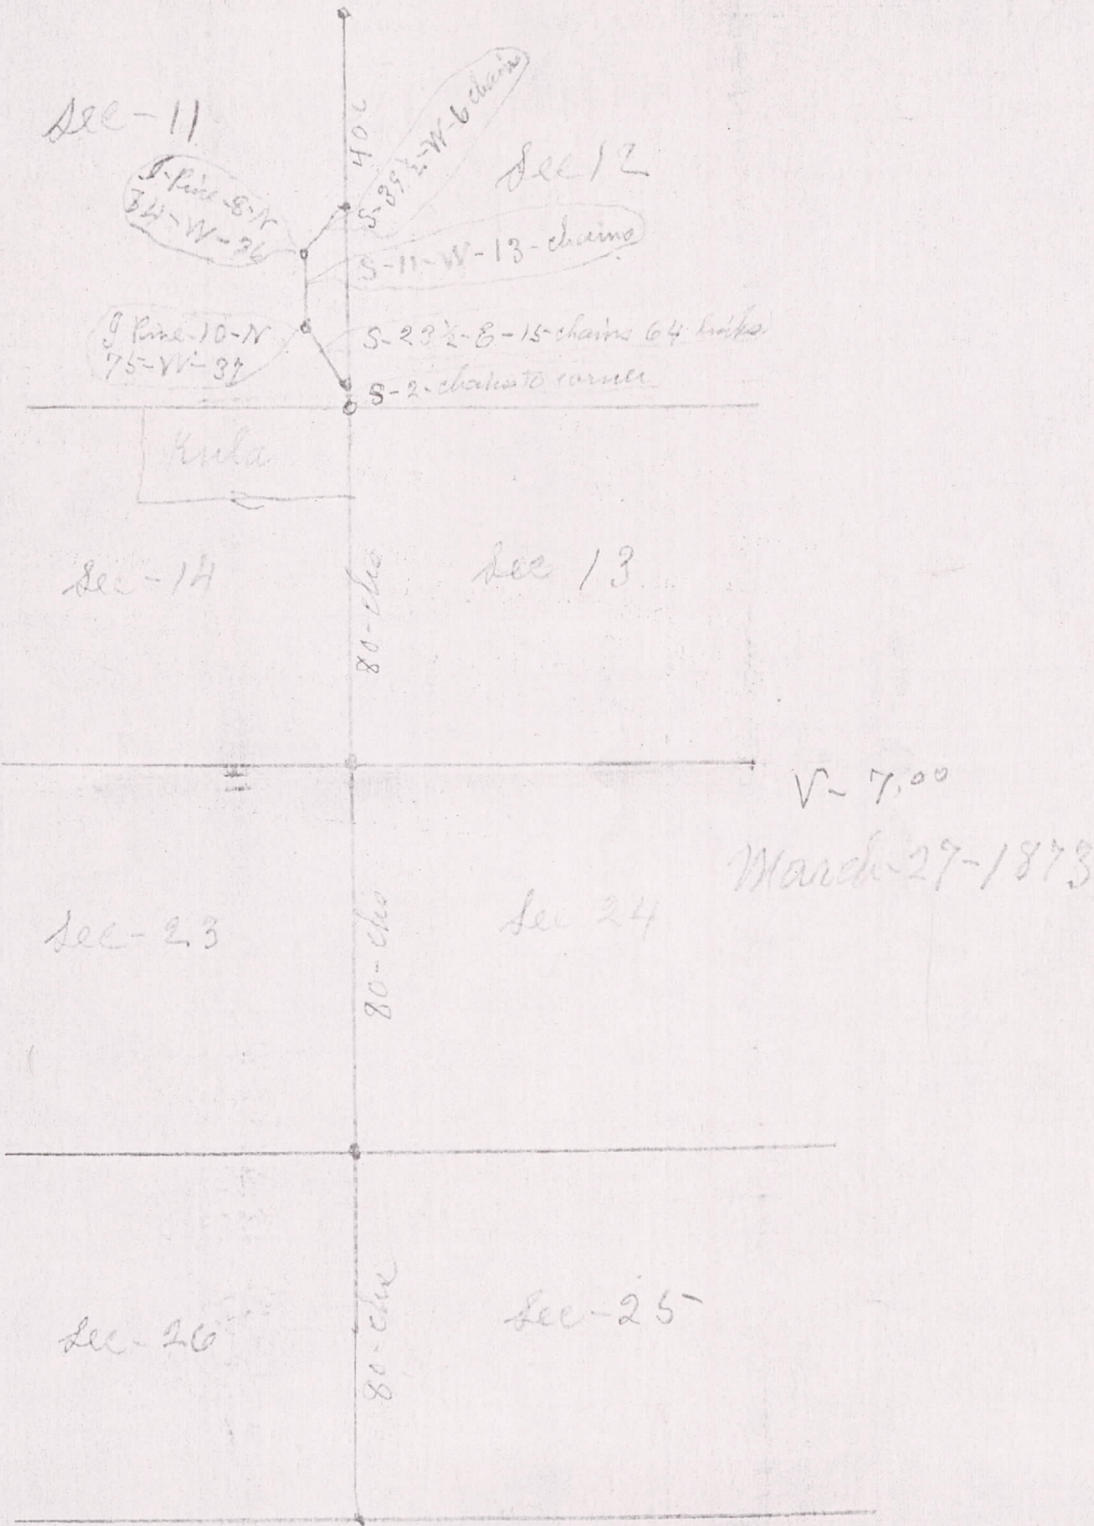 Sec-11
40c
S-39½-W-6 chain
Sec 12
J-Pine-8-N
34-W-36
S-11-W-13-chains
J Pine-10-N
75-W-37
S-23½-E-15-chains 64 links
S-2-chains to corner
Sec-14
80-chs
Sec 13
V- 7.00
March-27-1873
Sec-23
80-chs
Sec 24
Sec-26
80-chs
Sec-25